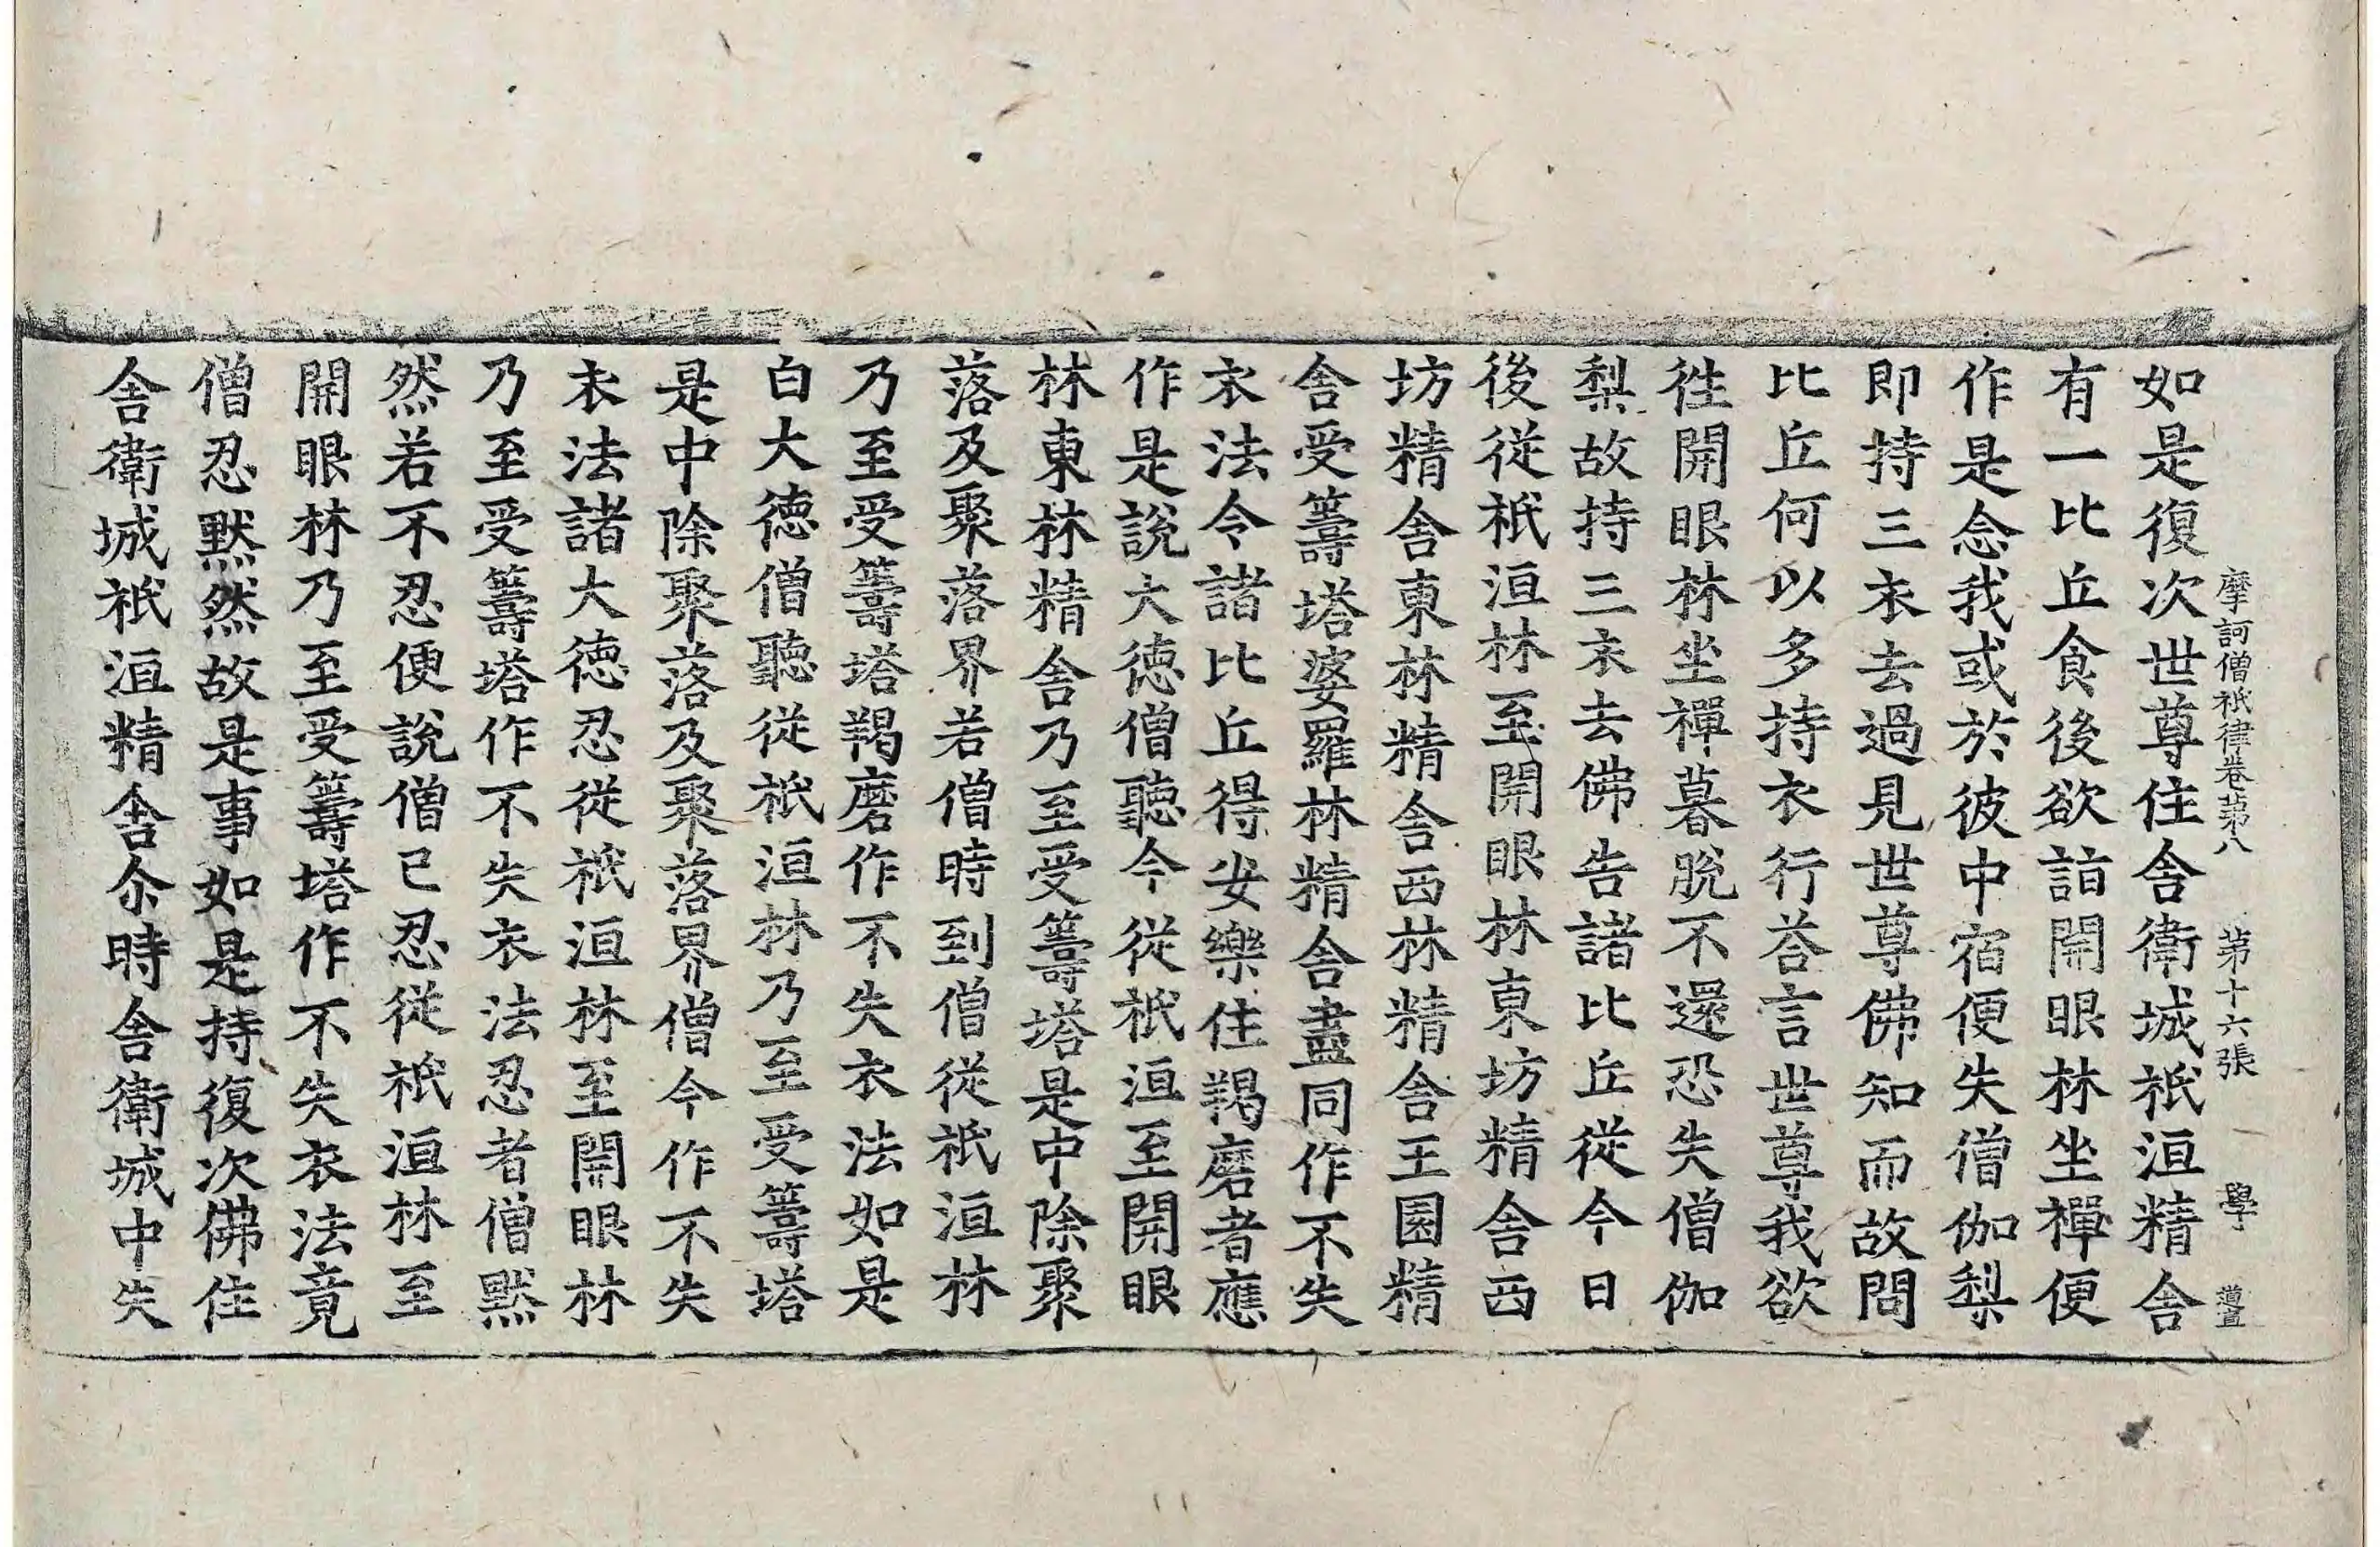 摩訶僧祇律卷第八 第十六張 學
如是復次世尊住舍衛城祇洹精舍
有一比丘食後欲詣開眼林坐禪便
作是念我或於彼中宿便失僧伽梨
即持三衣去過見世尊佛知而故問
比丘何以多持衣行荅言世尊我欲
徃開眼林坐禪暮脫不還恐失僧伽
梨故持三衣去佛告諸比丘從今日
後從祇洹林至開眼林東坊精舍西
坊精舍東林精舍西林精舍王園精
舍受籌塔婆羅林精舍盡同作不失
衣法令諸比丘得安樂住羯磨者應
作是說大徳僧聽今從祇洹至開眼
林東林精舍乃至受籌塔是中除聚
落及聚落界若僧時到僧從祇洹林
乃至受籌塔羯磨作不失衣法如是
白大徳僧聽從祇洹林乃至受籌塔
是中除聚落及聚落界僧今作不失
衣法諸大徳忍從祇洹林至開眼林
乃至受籌塔作不失衣法忍者僧默
然若不忍便說僧已忍從祇洹林至
開眼林乃至受籌塔作不失衣法竟
僧忍默然故是事如是持復次佛住
舍衛城祇洹精舍尒時舍衛城中失